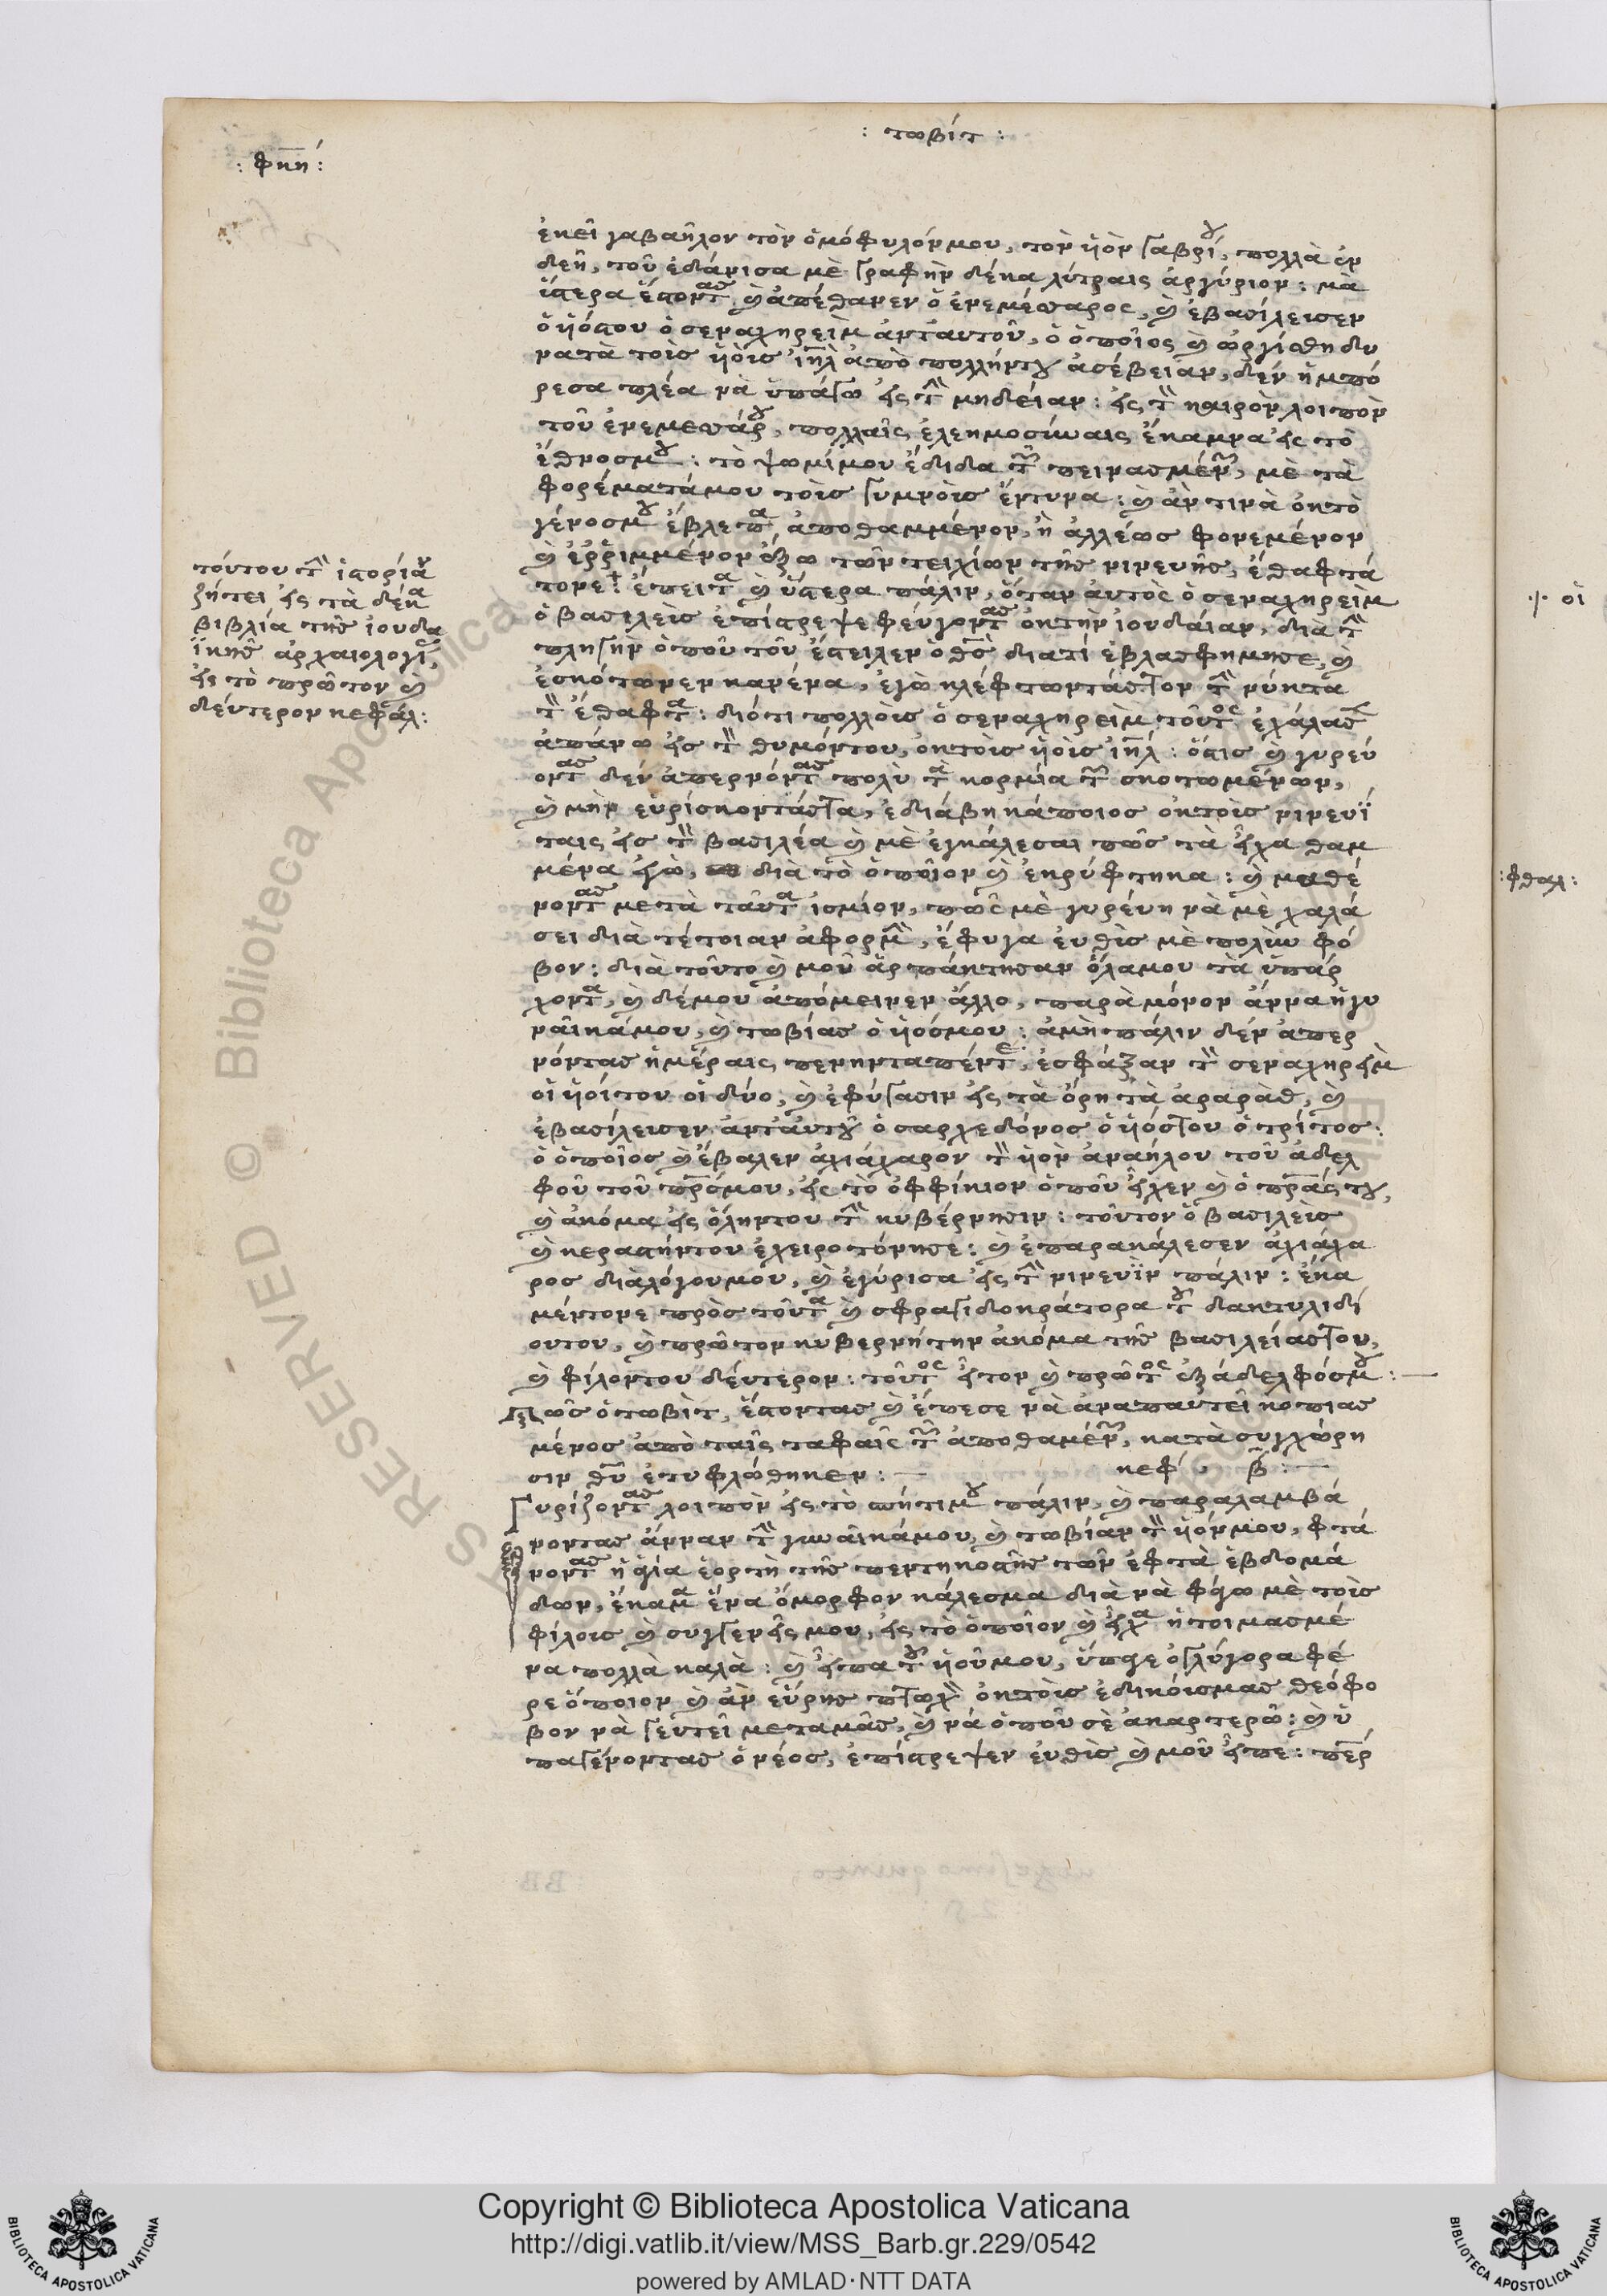 : τωβίτ :
: φκη :
ἐκεῖ γαβαῆλον τὸν ὁμόφυλόν μου, τὸν ὑὸν γαβρί, πολλὰ ἐν
δεῆ, τοῦ ἐδάνισα μὲ γραφὴν δέκα λύτραις ἀργύριον : μὰ
ὕστερα ἔστοντας ὁ ἐνεμέσαρος, ἐβασίλεισεν
ὁ ὑόστου ὁ σεναχηρεὶμ ἀνταυτοῦ, ὁ ὁποῖος ὠργίσθη
κατὰ τοῖς ὑὸις ἰηλ ἀπὸ πολλήντου ἀσέβειαν, δὲν ἠμπό
ρεσα πλέα νὰ ὑπάγω εἰς τὴν μηδείαν : εἰς τὸν καιρὸν λοιπὸν
τοῦ ἐνεμεσάρου, πολλαῖς ἐλεημοσύναις ἔκαμνα εἰς τὸ
ἔθνοσμου : τὸ ψωμίμου ἔδιδα τῶν πεινασμένων, μὲ τὰ
φορέματάμου τοὶς γυμνοὶς ἔντυνα : καὶ ἂν τινὰ ἐκ τὸ
γένοσμου ἔβλεπα ἀποθαμμένον, ἢ ἀλλέως φονεμένον
καὶ ἐῤῥιμμένον ἔξω τῶν τειχίων τῆς νινευῆς, ἔθαφτά
τονε : ἔπειτα καὶ ὕστερα πάλιν, ὅταν ἀυτὸς ὁ σεναχηρεὶμ
ὁ βασιλεὶς ἐπίστρεψε φεύγοντας ἐκ τὴν ἰουδάιαν, διὰ τὴν
πληγὴν ὁποῦ τοῦ ἔστειλεν ὁ θσ διατί ἐβλασφήμησε, καὶ
ἐσκότωνεν κανένα, ἐγὼ κλέφτωντάστον τὴν νύκτα
τὸν ἔθαφτα : διότι πολλὸις ὁ σεναχηρεὶμ τοῦτος ἐχάλασε
ἀπάνω εἰς τὸν θυμόντου, ἐκ τὸις ὑὸις ἰηλ : ὅστις καὶ γυρεύ
οντας δὲν ἀπερνόντας πολὺ τὰ κορμία τῶν σκοτωμένων,
καὶ μὴν εὑρίσκοντάστα, ἐδιάβη κάποιος ἐκ τὸις νινευΐ
ταις εἰς τὸν βασιλέα καὶ μὲ ἐγκάλεσαι πῶς τὰ εἶχα θαμ
μένα ἐγὼ, διὰ τὸ ὁποῖον καὶ ἐκρύφτηκα : καὶ μαθέ
νοντας μετὰ ταῦτα ἰσμίον, πῶς μὲ γυρέυη νὰ μὲ χαλά
σει διὰ τέτοιαν ἀφορμὴν, ἔφυγα ἐυθὶς μὲ πολὺν φό
βον : διὰ τοῦτο καὶ μοῦ ἁρπάκτησαν ὅλαμου τὰ ὑπάρ
χοντα, καὶ δέμου ἀπόμεινεν ἄλλο, παρὰ μόνον ἄννα ἡ γυ
ναῖκάμου, καὶ τωβίας ὁ ὑόσμου : ἀμὴ πάλιν δὲν ἀπερ
νόντας ἡμέραις πενηνταπέντε, ἐσφάξαν τὸν σεναχηρεὶμ
οἱ ὑοίτου οἱ δύο, καὶ ἐφύγασιν εἰς τὰ ὄρη τὰ ἀραρὰθ, καὶ
ἐβασίλεισεν ἀνταυτοῦ ὁ σαρχεδόνος ὁ ὑόστου ὁ τρίτος :
ὁ ὁποῖος καὶ ἔβαλεν ἀχιάχαρον τὸν ὑὸν ἀναήλου τοῦ ἀδελ
φοῦ τοῦ πρόσμου, εἰς τὸ ὀφφίκιον ὁποῦ εἶχεν καὶ ὁ πράς του,
καὶ ἀκόμα εἰς ὅληντου τὴν κυβέρνησιν : τοῦτον ὁ βασιλεὶς
καὶ κεραστήντου ἐχειροτόνησε : καὶ ἐπαρακάλεσεν ἀχιάχα
ρος διαλόγουμου, καὶ ἐγύρισα εἰς τὴν νινευῒν πάλιν : ἔκα
μέντονε πρὸς τοῦτα καὶ σφραγιδοκράτορα τοῦ δακτυλιδί
ουτου, καὶ πρῶτον κυβερνήτην ἀκόμα τῆς βασιλείαστου,
καὶ φίλοντου δέυτερον : τοῦτος εἶτον καὶ πρῶτος ἐξάδελφόσμου : —
πῶς ὁ τωβὶτ, ἔστοντας καὶ ἔπεσε νὰ ἀναπαυτεῖ κοπιας
μένος ἀπὸ ταῖς ταφαῖς τῶν ἀποθαμένων, κατὰ συγχώρη
σιν θῦ ἐτυφλώθηκεν : — κεφ . β : —
Γυρίζοντας λοιπὸν εἰς τὸ σπήτιμου πάλιν, καὶ παραλαμβά
νοντας ἄνναν τὴν γυναῖκάμου, καὶ τωβίαν τὸν ὑόνμου, φτά
νοντας ἡ ἁγία ἑορτὴ τῆς πεντηκοστῆς τῶν ἐφτὰ ἑβδομά
δων, ἔκαμα ἕνα ὄμορφον κάλεσμα διὰ νὰ φάγω μὲ τοὶς
φίλοις καὶ συγγενεῖς μου, εἰς τὸ ὁποῖον καὶ εἶχα ἡτοιμασμέ
να πολλὰ καλὰ : καὶ εἶπα τοῦ ὑοῦμου, ὕπαγε ὀγλύγορα φέ
ρε ὅποιον καὶ ἂν εὕρης πτωχὸν ἐκ τὸις ἐδικόισμας θεόφο
βον νὰ γευτεῖ μεταμᾶς, καὶ νά ὁποῦ σὲ ἀναρτερῶ : καὶ ὑ
παγένοντας ὁ νέος, ἐπίστρεψεν ἐυθὶς καὶ μοῦ εἶπε : περ
τόυτου τὴν ἱστορίαν
ζήτει εἰς τὰ δέκα
βιβλία τῆς ἰουδα
ϊκῆς ἀρχαιολογίας,
εἰς τὸ πρῶτον καὶ
δέυτερον κεφάλ :
οἱ
: φθαλ :
Copyright © Biblioteca Apostolica Vaticana
http://digi.vatlib.it/view/MSS_Barb.gr.229/0542
powered by AMLAD·NTT DATA